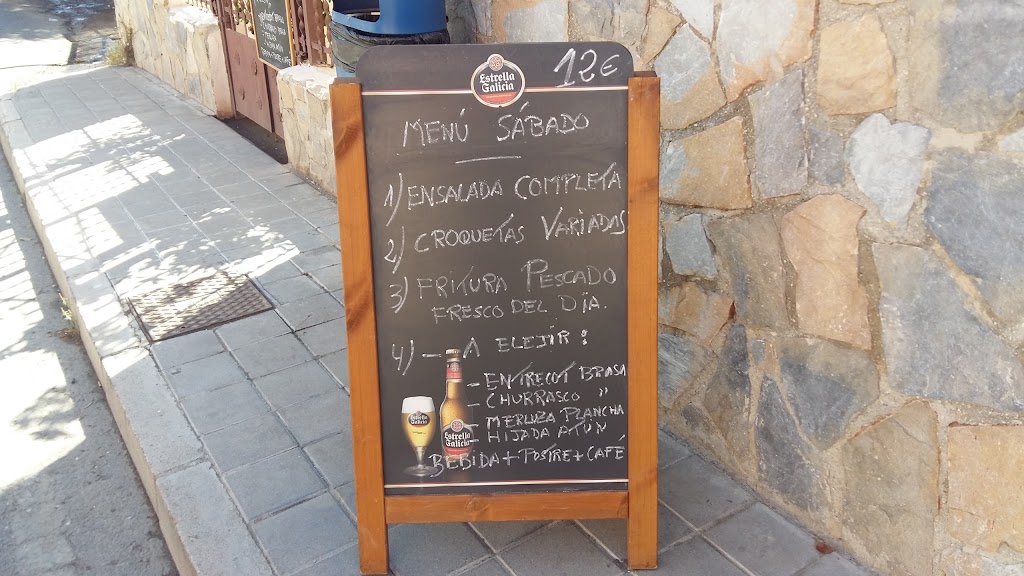 12€
Estrella
Galicia
MENÚ SÁBADO
1) ENSALADA COMPLETA
2) CROQUETAS VARIADAS
3) FRITURA PESCADO
FRESCO DEL DÍA.
4) - A ELEJIR:
- ENTRECOT BRASA
- CHURRASCO "
- MERLUZA PLANCHA
- HIJADA ATÚN
BEBIDA + POSTRE + CAFÉ
Estrella
Galicia